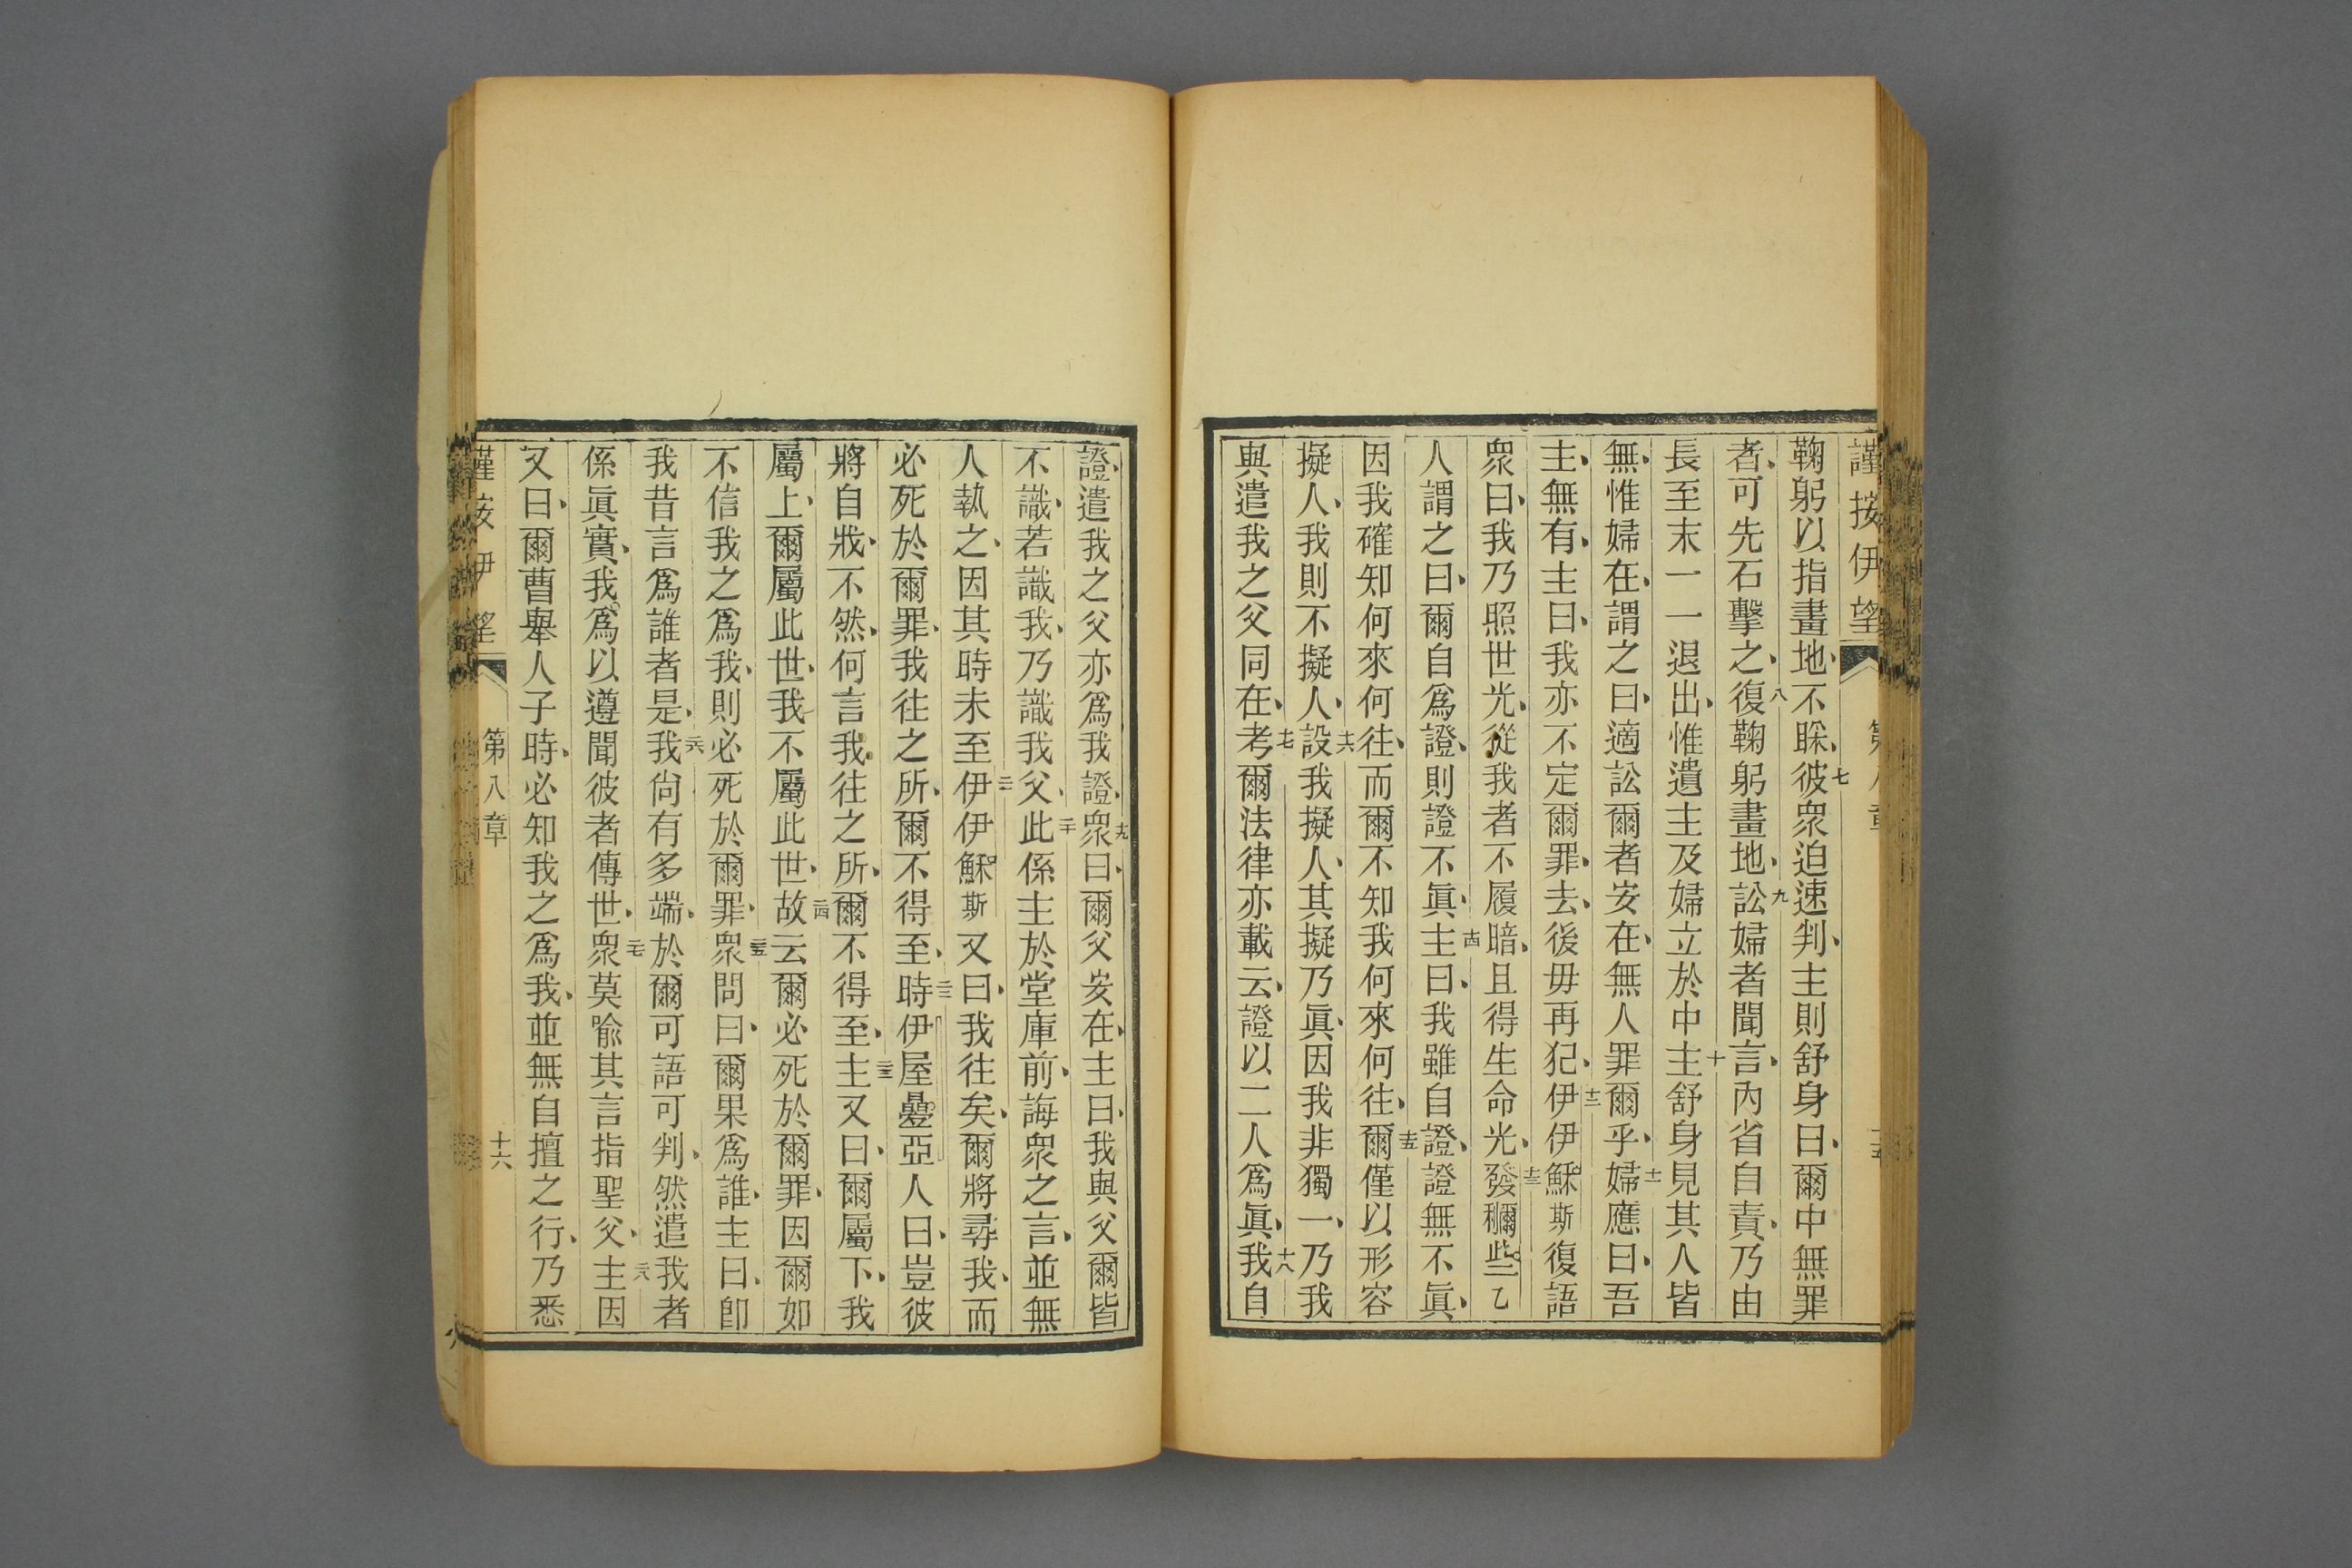 謹按伊望
鞠躬以指畫地、不睬、七彼衆迫速判、主則舒身曰、爾中無罪
者、可先石擊之、八復鞠躬畫地、九訟婦者聞言、內省自責、乃由
長至末一一退出、惟遺主及婦立於中、十主舒身見其人皆
無、惟婦在、謂之曰、適訟爾者安在、無人罪爾乎、十一婦應曰、吾
主、無有、主曰、我亦不定爾罪、去、後毋再犯、十二伊伊穌斯復語
衆曰、我乃照世光、從我者不履暗、且得生命光、十三發穪些乙
人謂之曰、爾自爲證、則證不眞、十四主曰、我雖自證、證無不眞、
因我確知何來何往、而爾不知我何來何往、十五爾僅以形容
擬人、我則不擬人、十六設我擬人、其擬乃眞、因我非獨一、乃我
與遣我之父同在、十七考爾法律亦載云、證以二人爲眞、十八我自
證、遣我之父亦爲我證、十九衆曰、爾父安在、主曰、我與父爾皆
不識、若識我、乃識我父、二十此係主於堂庫前、誨衆之言、並無
人執之、因其時未至、二一伊伊穌斯又曰、我往矣、爾將尋我、而
必死於爾罪、我往之所、爾不得至、二二時伊屋疊亞人曰、豈彼
將自戕、不然、何言我往之所、爾不得至、二三主又曰、爾屬下、我
屬上、爾屬此世、我不屬此世、二四故云爾必死於爾罪、因爾如
不信我之爲我、則必死於爾罪、二五衆問曰、爾果爲誰、主曰、卽
我昔言爲誰者是、二六我尙有多端、於爾可語可判、然遣我者
係眞實、我爲以遵聞彼者傳世、二七衆莫喻其言指聖父、二八主因
又曰、爾曹舉人子時、必知我之爲我、並無自擅之行、乃悉
第八章
十六